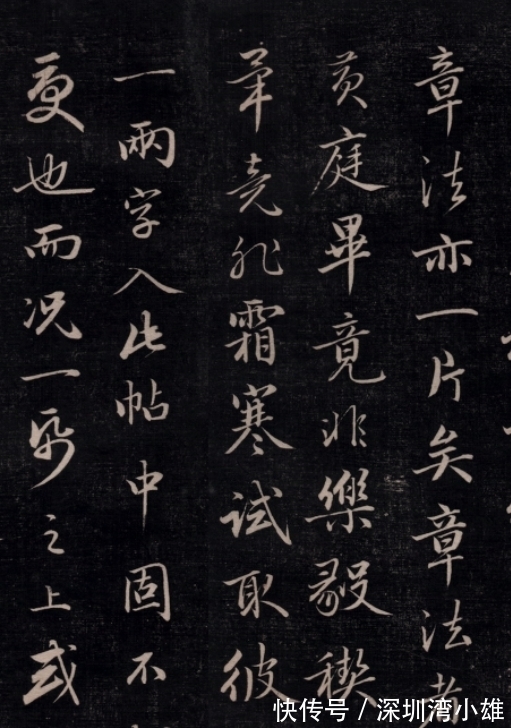 章法亦一片矣章法
黄庭畢竟非樂毅稧
筆竟非霜寒試取彼
一兩字入此帖中固不
更也而况一帋之上或
快传号 / 深圳湾小雄